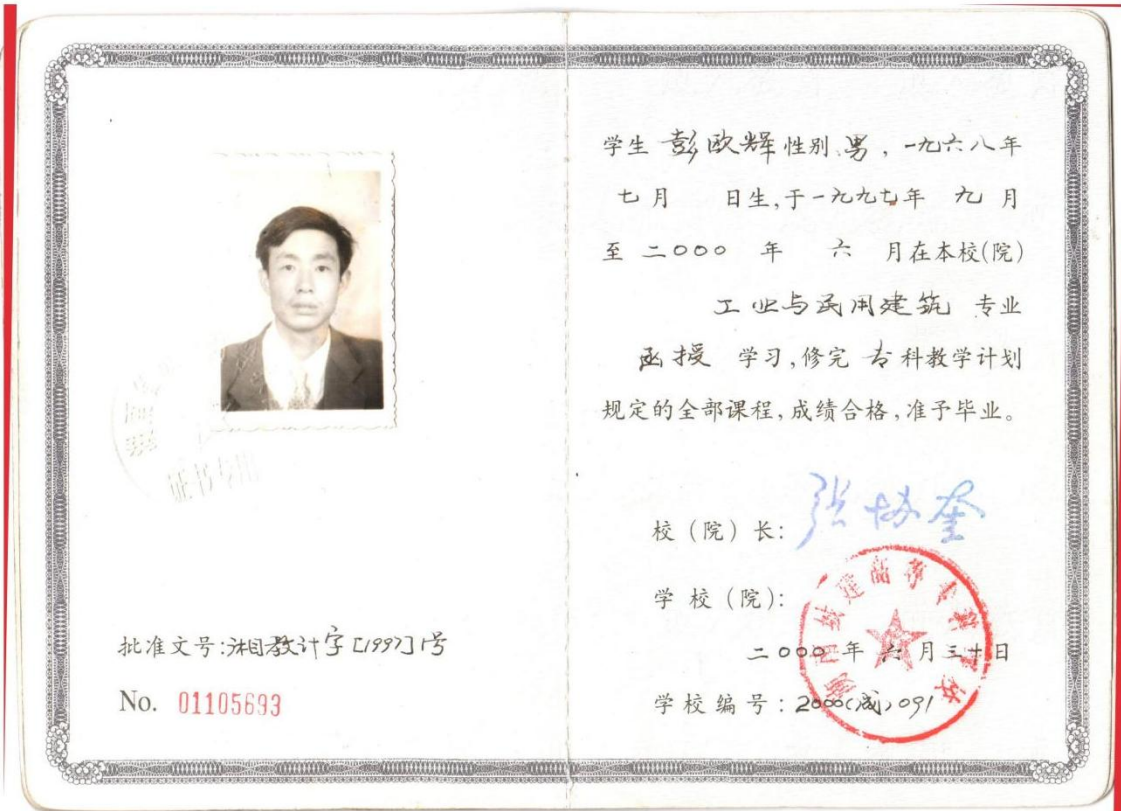 证书专用
批准文号:湘教计字[1997]1号
No. 01105693
学生 彭欧辉 性别 男,一九六八年
七月 日生,于一九九七年 九 月
至 二〇〇〇 年 六 月在本校(院)
工业与民用建筑 专业
函授 学习,修完 专科教学计划
规定的全部课程,成绩合格,准予毕业。
校(院)长: 张协奎
学校(院):
湖南城建高等专科学校
二〇〇〇年 六月三十日
学校编号:2000(成)091